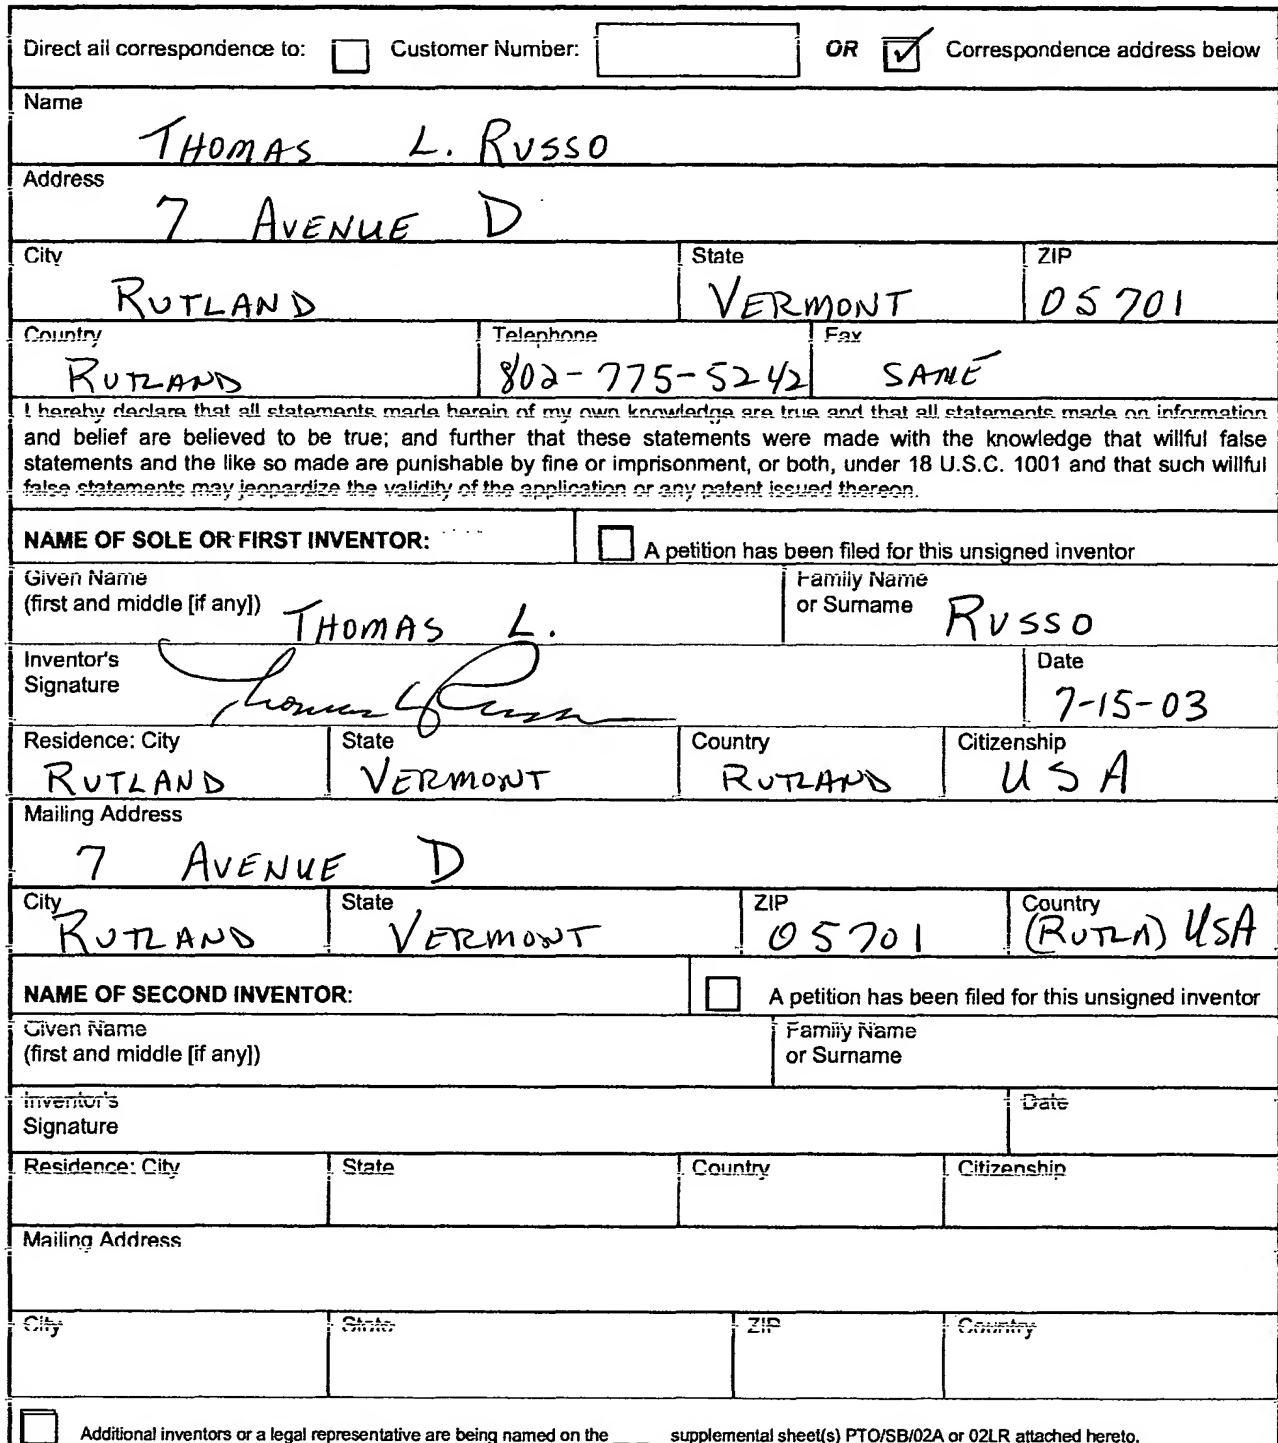 Direct all correspondence to: Customer Number: OR Correspondence address below
Name
THOMAS L. RUSSO
Address
7 AVENUE D
City State ZIP
RUTLAND VERMONT 05701
Country Telephone Fax
RUTLAND 802-775-5242 SAME
I hereby declare that all statements made herein of my own knowledge are true and that all statements made on information
and belief are believed to be true; and further that these statements were made with the knowledge that willful false
statements and the like so made are punishable by fine or imprisonment, or both, under 18 U.S.C. 1001 and that such willful
false statements may jeopardize the validity of the application or any patent issued thereon.
NAME OF SOLE OR FIRST INVENTOR: A petition has been filed for this unsigned inventor
Given Name Family Name
(first and middle [if any]) THOMAS L. or Surname RUSSO
Inventor's Date
Signature Thomas L Russo 7-15-03
Residence: City State Country Citizenship
RUTLAND VERMONT RUTLAND USA
Mailing Address
7 AVENUE D
City State ZIP Country
RUTLAND VERMONT 05701 (RUTLA) USA
NAME OF SECOND INVENTOR: A petition has been filed for this unsigned inventor
Given Name Family Name
(first and middle [if any]) or Surname
Inventor's Date
Signature
Residence: City State Country Citizenship
Mailing Address
City State ZIP Country
Additional inventors or a legal representative are being named on the ____ supplemental sheet(s) PTO/SB/02A or 02LR attached hereto.